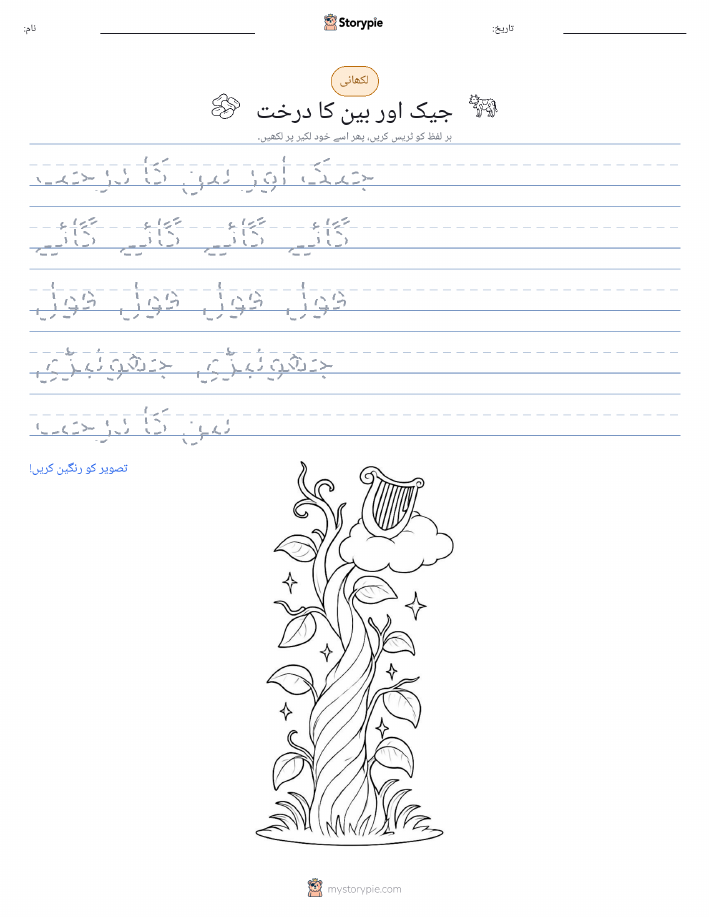 نام:
Storypie
تاریخ:
لکھائی
جیک اور بین کا درخت
ہر لفظ کو ٹریس کریں، پھر اسے خود لکیر پر لکھیں۔
جیک اور بین کا درخت
گائے گائے گائے گائے
جھونپڑی جھونپڑی
بین کا درخت
تصویر کو رنگین کریں!
mystorypie.com